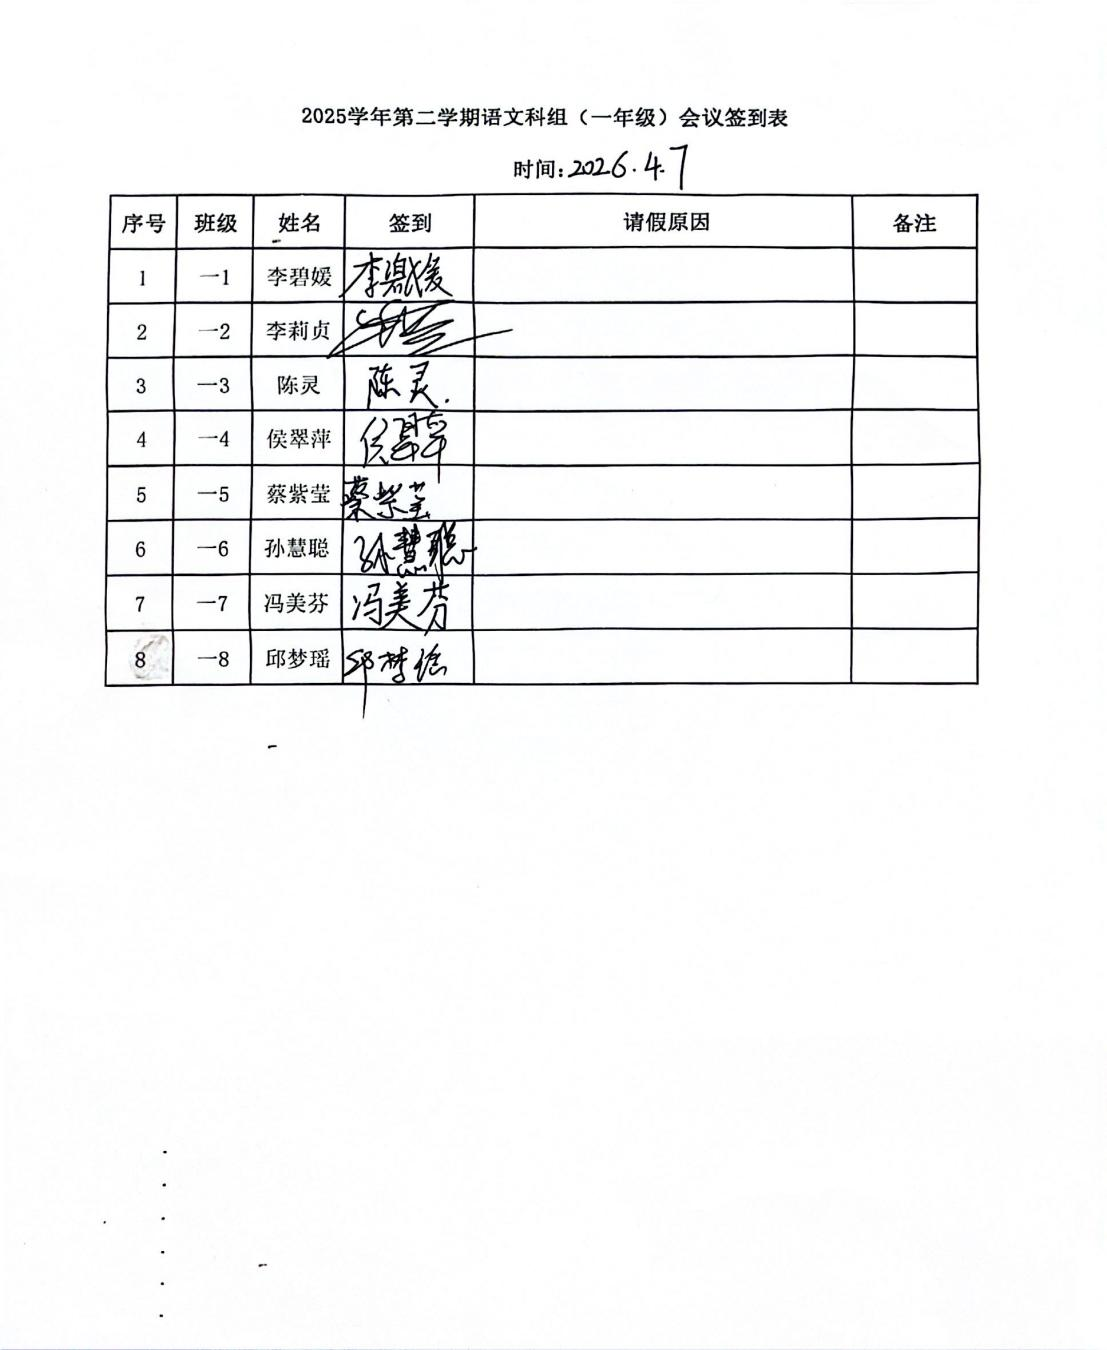 2025学年第二学期语文科组（一年级）会议签到表
时间:2026.4.7
序号 班级 姓名 签到 请假原因 备注
1 一1 李碧媛 李碧媛
2 一2 李莉贞
3 一3 陈灵 陈灵.
4 一4 侯翠萍 侯翠萍
5 一5 蔡紫莹 蔡紫莹
6 一6 孙慧聪 孙慧聪
7 一7 冯美芬 冯美芬
8 一8 邱梦瑶 邱梦瑶